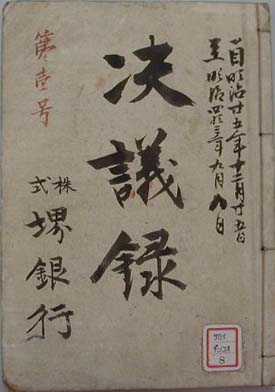 自明治廿五年十二月廿五日
至明治四十三年九月八日
決議録
第壹号
株式
堺銀行
8